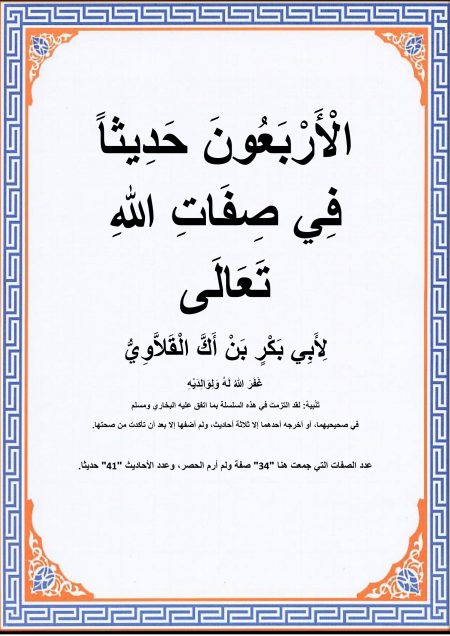 الْأَرْبَعُونَ حَدِيثاً
فِي صِفَاتِ اللهِ
تَعَالَى
لِأَبِي بَكْرٍ بَنْ أَكَّ الْقَلَّاوِيُّ
غَفَرَ اللهُ لَهُ وَلِوَالِدَيْهِ
تنبية: لقد التزمت في هذه السلسلة بما اتفق عليه البخاري ومسلم
في صحيحيهما، أو أخرجه أحدهما إلا ثلاثة أحاديث، ولم أضفها إلا بعد أن تأكدت من صحتها.
عدد الصفات التي جمعت هنا "34" صفة ولم أرم الحصر، وعدد الأحاديث "41" حديثا.